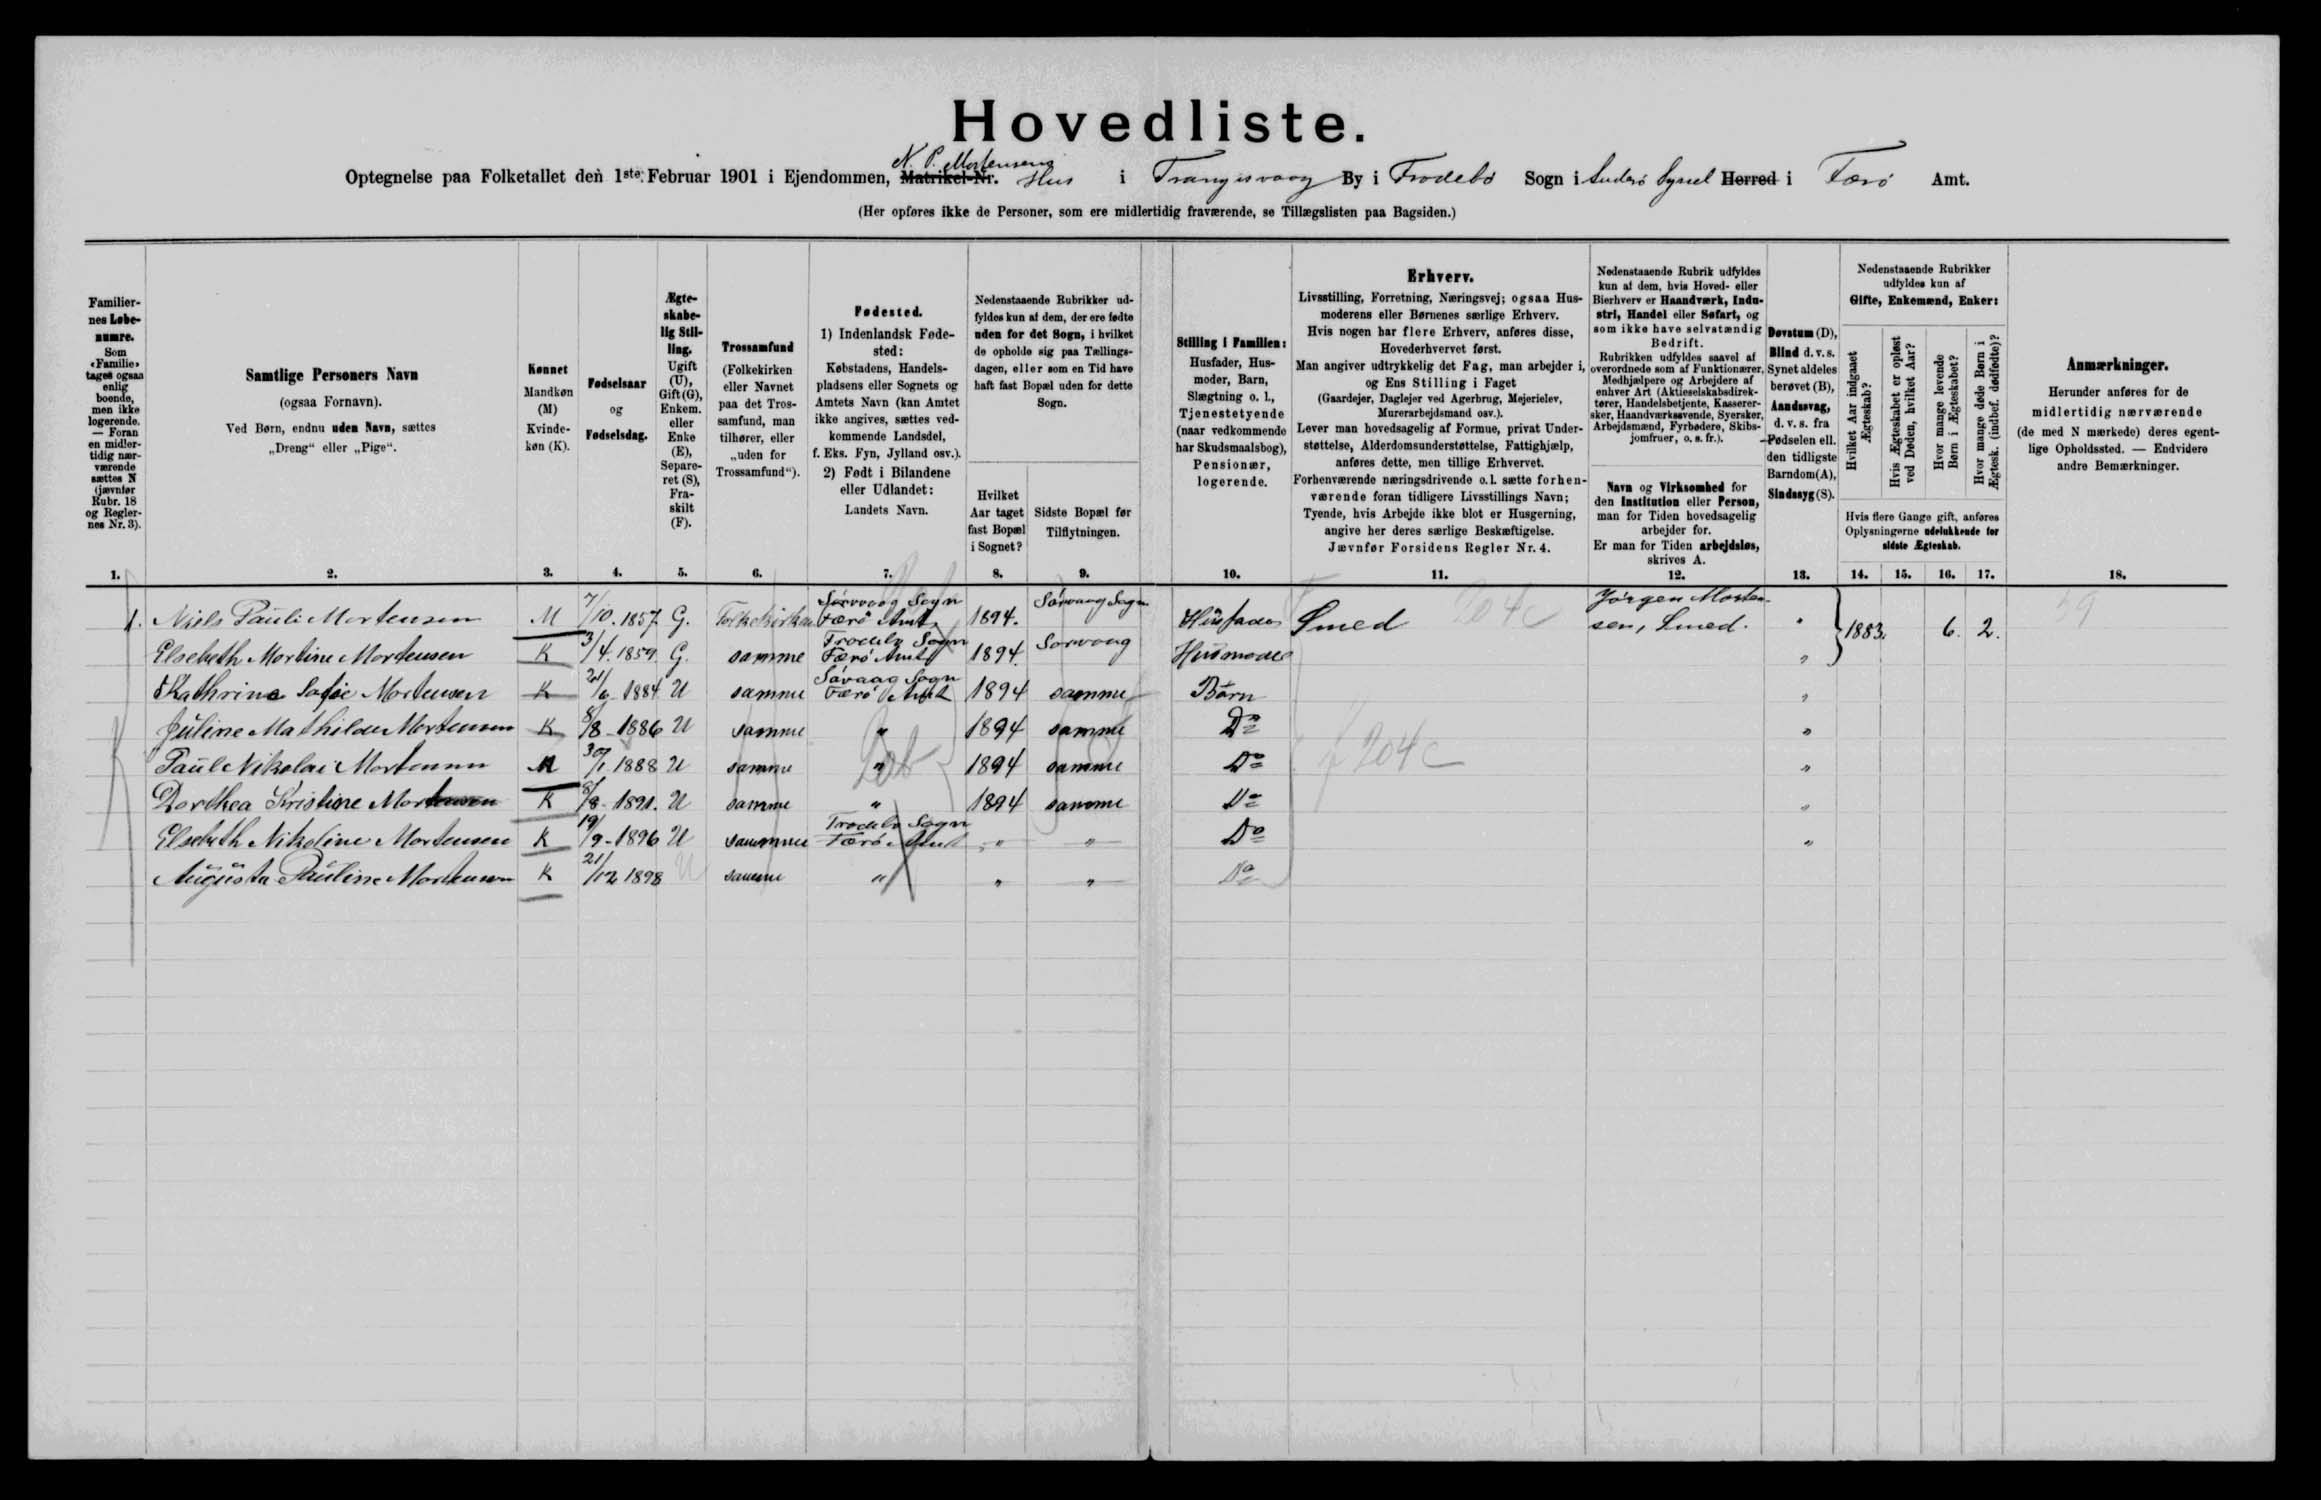 Hovedliste.
N. P. Mortensens
Optegnelse paa Folketallet den 1ste Februar 1901 i Ejendommen, Matrikel-Nr. Hus i Trangisvaag By i Frodebø Sogn i Suderø Syssel Herred i Færø Amt.
(Her opføres ikke de Personer, som ere midlertidig fraværende, se Tillægslisten paa Bagsiden.)
Familier-
nes Løbe-
numre.
Som
«Familie»
tages ogsaa
enlig
boende,
men ikke
logerende.
— Foran
en midler-
tidig nær-
værende
sættes N
(jævnfør
Rubr. 18
og Regler-
nes Nr. 3).
1.
Samtlige Personers Navn
(ogsaa Fornavn).
Ved Børn, endnu uden Navn, sættes
„Dreng“ eller „Pige“.
2.
Kønnet
Mandkøn
(M)
Kvinde-
køn (K).
3.
Fødselsaar
og
Fødselsdag.
4.
Ægte-
skabe-
lig Stil-
ling.
Ugift
(U),
Gift (G),
Enkem.
eller
Enke
(E),
Separe-
ret (S),
Fra-
skilt
(F).
5.
Trossamfund
(Folkekirken
eller Navnet
paa det Tros-
samfund, man
tilhører, eller
„uden for
Trossamfund“).
6.
Fødested.
1) Indenlandsk Føde-
sted:
Købstadens, Handels-
pladsens eller Sognets og
Amtets Navn (kan Amtet
ikke angives, sættes ved-
kommende Landsdel,
f. Eks. Fyn, Jylland osv.).
2) Født i Bilandene
eller Udlandet:
Landets Navn.
7.
Nedenstaaende Rubrikker ud-
fyldes kun af dem, der ere fødte
uden for det Sogn, i hvilket
de opholde sig paa Tællings-
dagen, eller som en Tid have
haft fast Bopæl uden for dette
Sogn.
Hvilket
Aar taget
fast Bopæl
i Sognet?
8.
Sidste Bopæl før
Tilflytningen.
9.
Stilling i Familien:
Husfader, Hus-
moder, Barn,
Slægtning o. l.,
Tjenestetyende
(naar vedkommende
har Skudsmaalsbog),
Pensionær,
logerende.
10.
Erhverv.
Livsstilling, Forretning, Næringsvej; ogsaa Hus-
moderens eller Børnenes særlige Erhverv.
Hvis nogen har flere Erhverv, anføres disse,
Hovederhvervet først.
Man angiver udtrykkelig det Fag, man arbejder i,
og Ens Stilling i Faget
(Gaardejer, Daglejer ved Agerbrug, Mejerielev,
Murerarbejdsmand osv.).
Lever man hovedsagelig af Formue, privat Under-
støttelse, Alderdomsunderstøttelse, Fattighjælp,
anføres dette, men tillige Erhvervet.
Forhenværende næringsdrivende o. l. sætte forhen-
værende foran tidligere Livsstillings Navn;
Tyende, hvis Arbejde ikke blot er Husgerning,
angive her deres særlige Beskæftigelse.
Jævnfør Forsidens Regler Nr. 4.
11.
Nedenstaaende Rubrik udfyldes
kun af dem, hvis Hoved- eller
Bierhverv er Haandværk, Indu-
stri, Handel eller Søfart, og
som ikke have selvstændig
Bedrift.
Rubrikken udfyldes saavel af
overordnede som af Funktionærer,
Medhjælpere og Arbejdere af
enhver Art (Aktieselskabsdirek-
tører, Handelsbetjente, Kasserer-
sker, Haandværkssvende, Syersker,
Arbejdsmænd, Fyrbødere, Skibs-
jomfruer, o. s. fr.).
Navn og Virksomhed for
den Institution eller Person,
man for Tiden hovedsagelig
arbejder for.
Er man for Tiden arbejdsløs,
skrives A.
12.
Døvstum (D),
Blind d. v. s.
Synet aldeles
berøvet (B),
Aandssvag,
d. v. s. fra
Fødselen ell.
den tidligste
Barndom (A),
Sindssyg (S).
13.
Nedenstaaende Rubrikker
udfyldes kun af
Gifte, Enkemænd, Enker:
Hvilket Aar indgaaet
Ægteskab?
Hvis Ægteskabet er opløst
ved Døden, hvilket Aar?
Hvor mange levende
Børn i Ægteskabet?
Hvor mange døde Børn i
Ægtesk. (indbef. dødfødte)?
Hvis flere Gange gift, anføres
Oplysningerne udelukkende for
sidste Ægteskab.
14. 15. 16. 17.
Anmærkninger.
Herunder anføres for de
midlertidig nærværende
(de med N mærkede) deres egent-
lige Opholdssted. — Endvidere
andre Bemærkninger.
18.
1. Niels Pauli Mortensen M 7/10. 1857. G. Folkekirken Sørvaag Sogn Færø Amt 1894. Sørvaag Sogn Husfader Smed 204c Jørgen Morten-
sen, Smed. " 1883. 6. 2. 59
Elsebeth Mortine Mortensen K 3/4. 1859. G. samme Frodebø Sogn Færø Amt 1894. Sørvaag Husmoder "
Kathrina Sofie Mortensen K 21/6 1884 U samme Søvaag Sogn Færø Amt 1894 samme Børn "
Juline Mathilde Mortensen K 8/8 - 1886 U samme " 1894 samme Do "
Paul Nikolai Mortensen M 30/1 1888 U samme " 1894 samme Do 204c "
Dorthea Kristine Mortensen K 8/8 - 1891. U samme " 1894 samme Do "
Elsebeth Nikoline Mortensen K 19/9 - 1896 U samme Frodebø Sogn Færø Amt " " Do "
Augusta Pauline Mortensen K 21/12 1898 U samme " " " Do